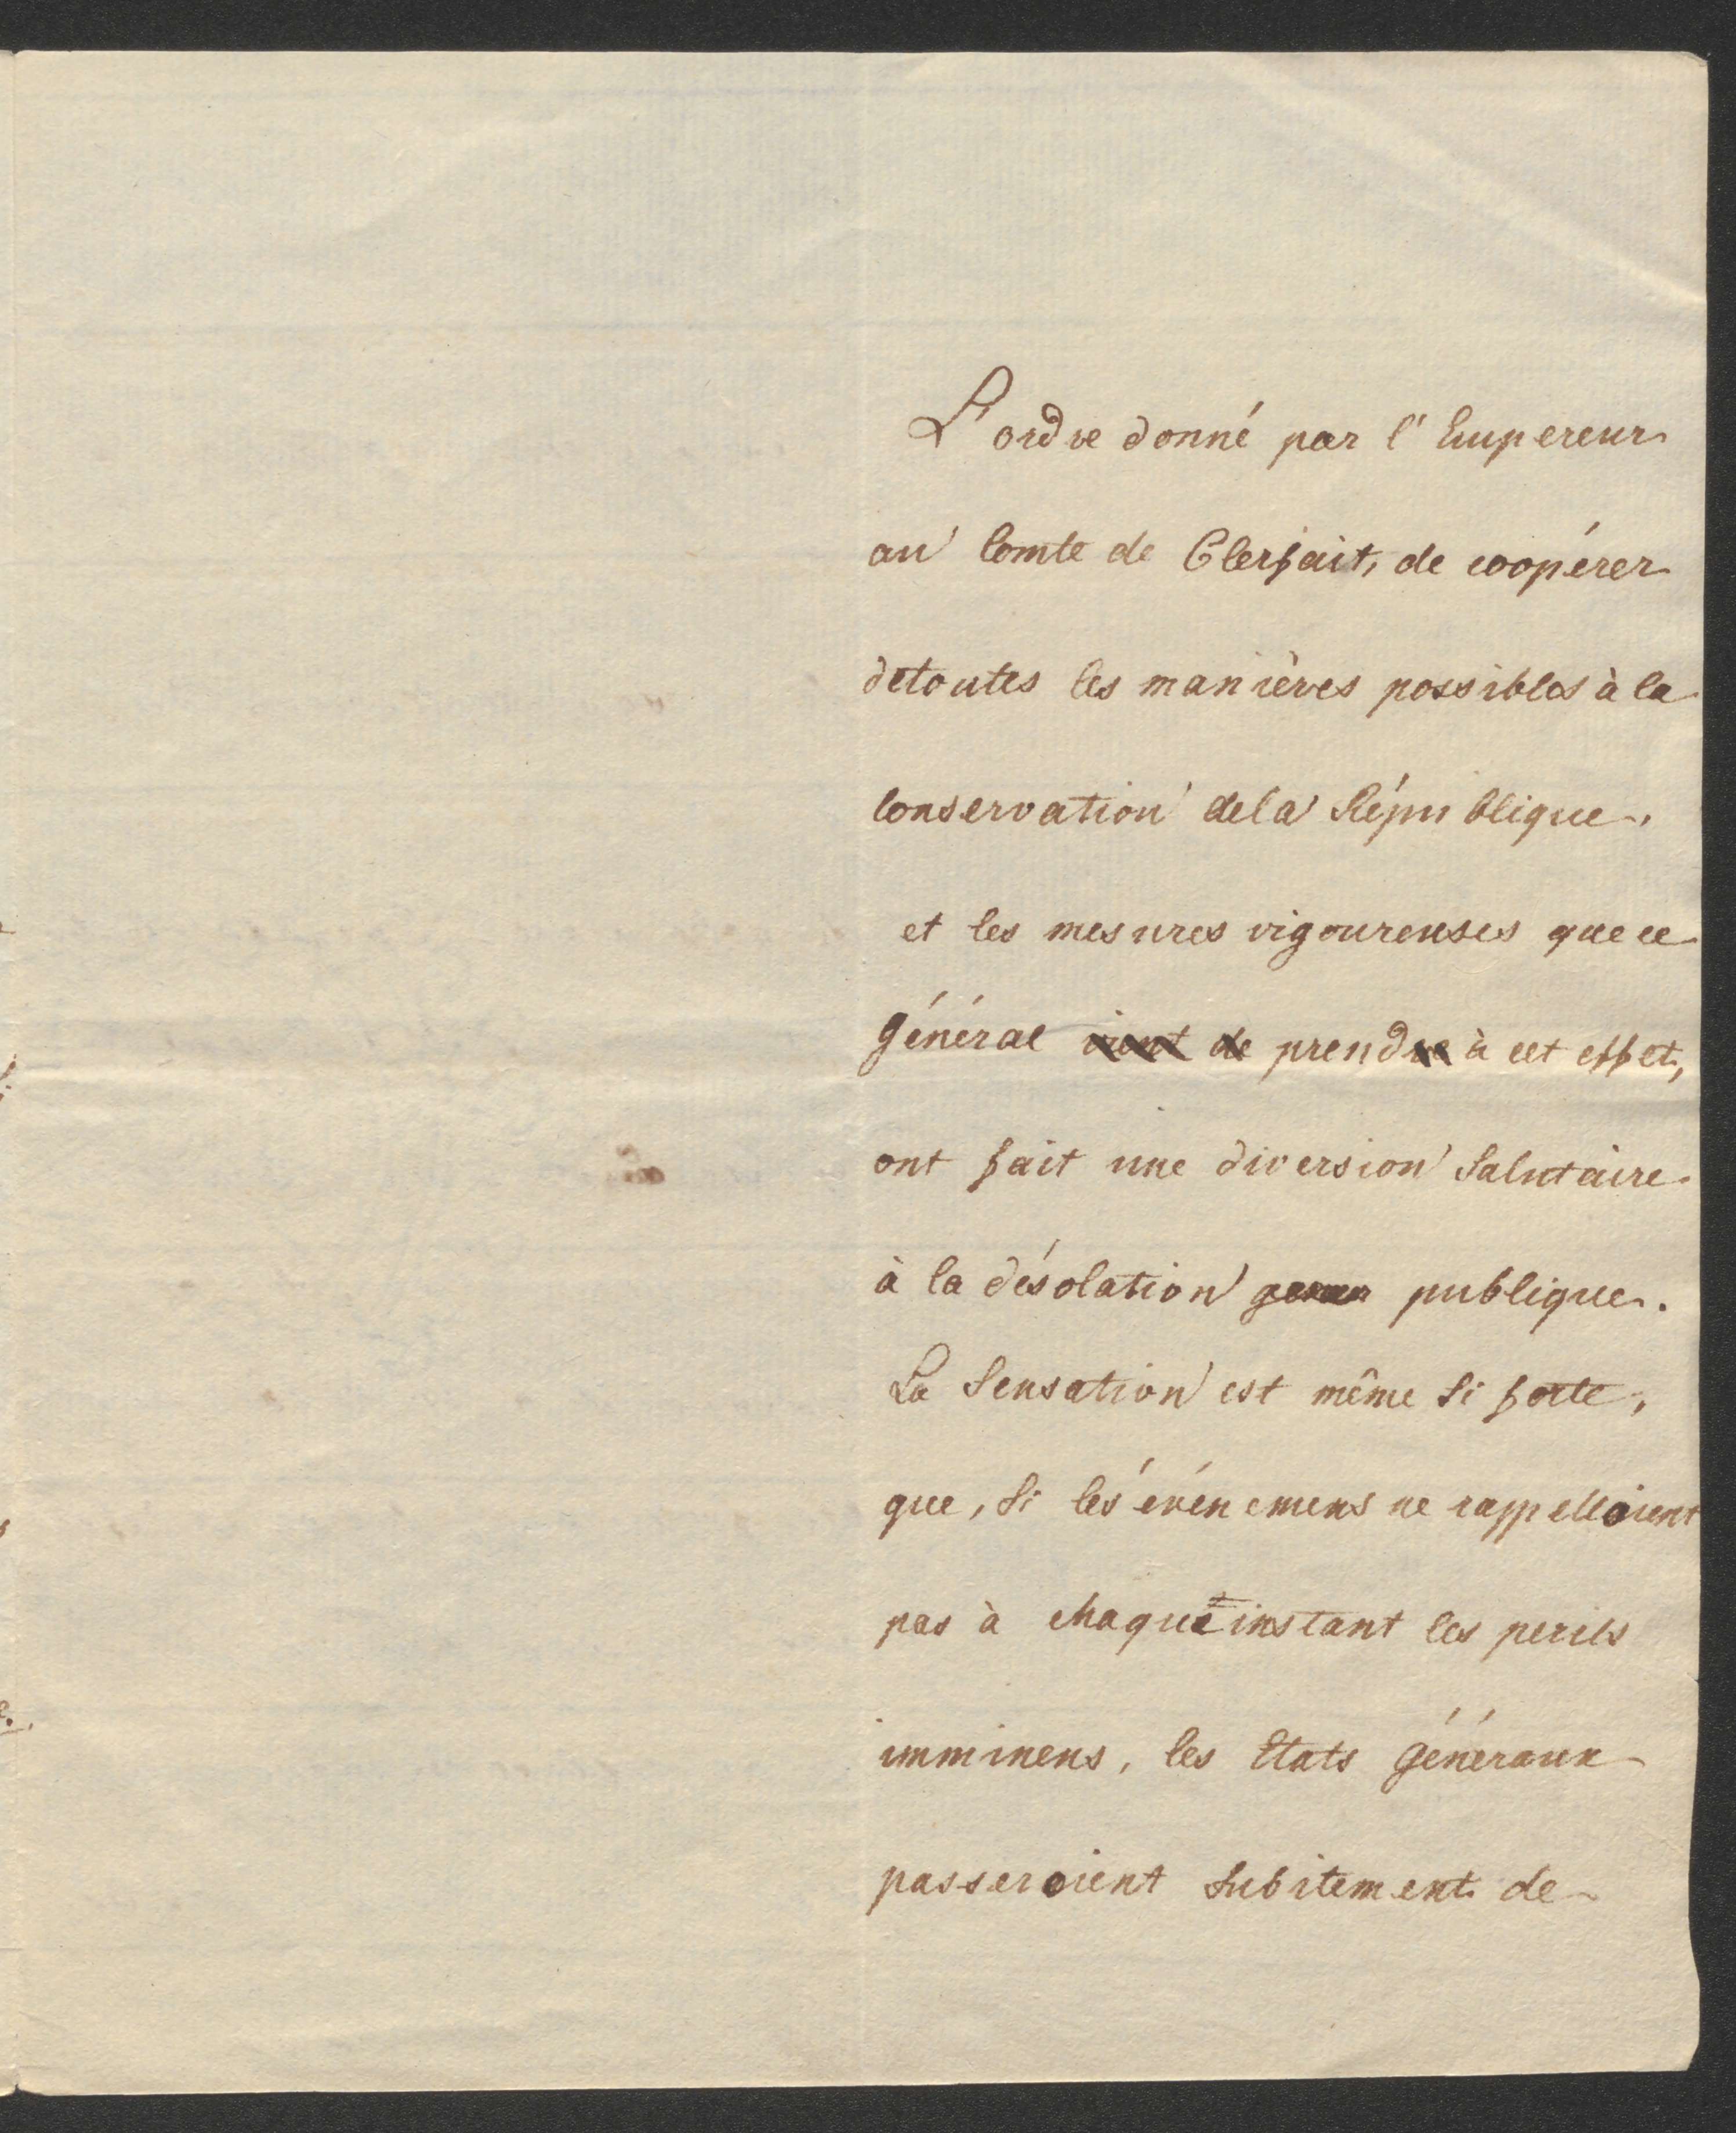 L'ordre donné par l'Empereur
au Comte de Clerfait, de coopérer
de toutes les manières possibles à la
Conservation de la République,
et les mesures vigoureuses que ce
Général vient de prendre à cet effet,
ont fait une diversion Salutaire
à la désolation publique.
La Sensation est même Si forte,
que, Si les événemens ne rappelloient
pas à chaque instant les perils
imminens, les Etats Généraux
passeroient Subitement de